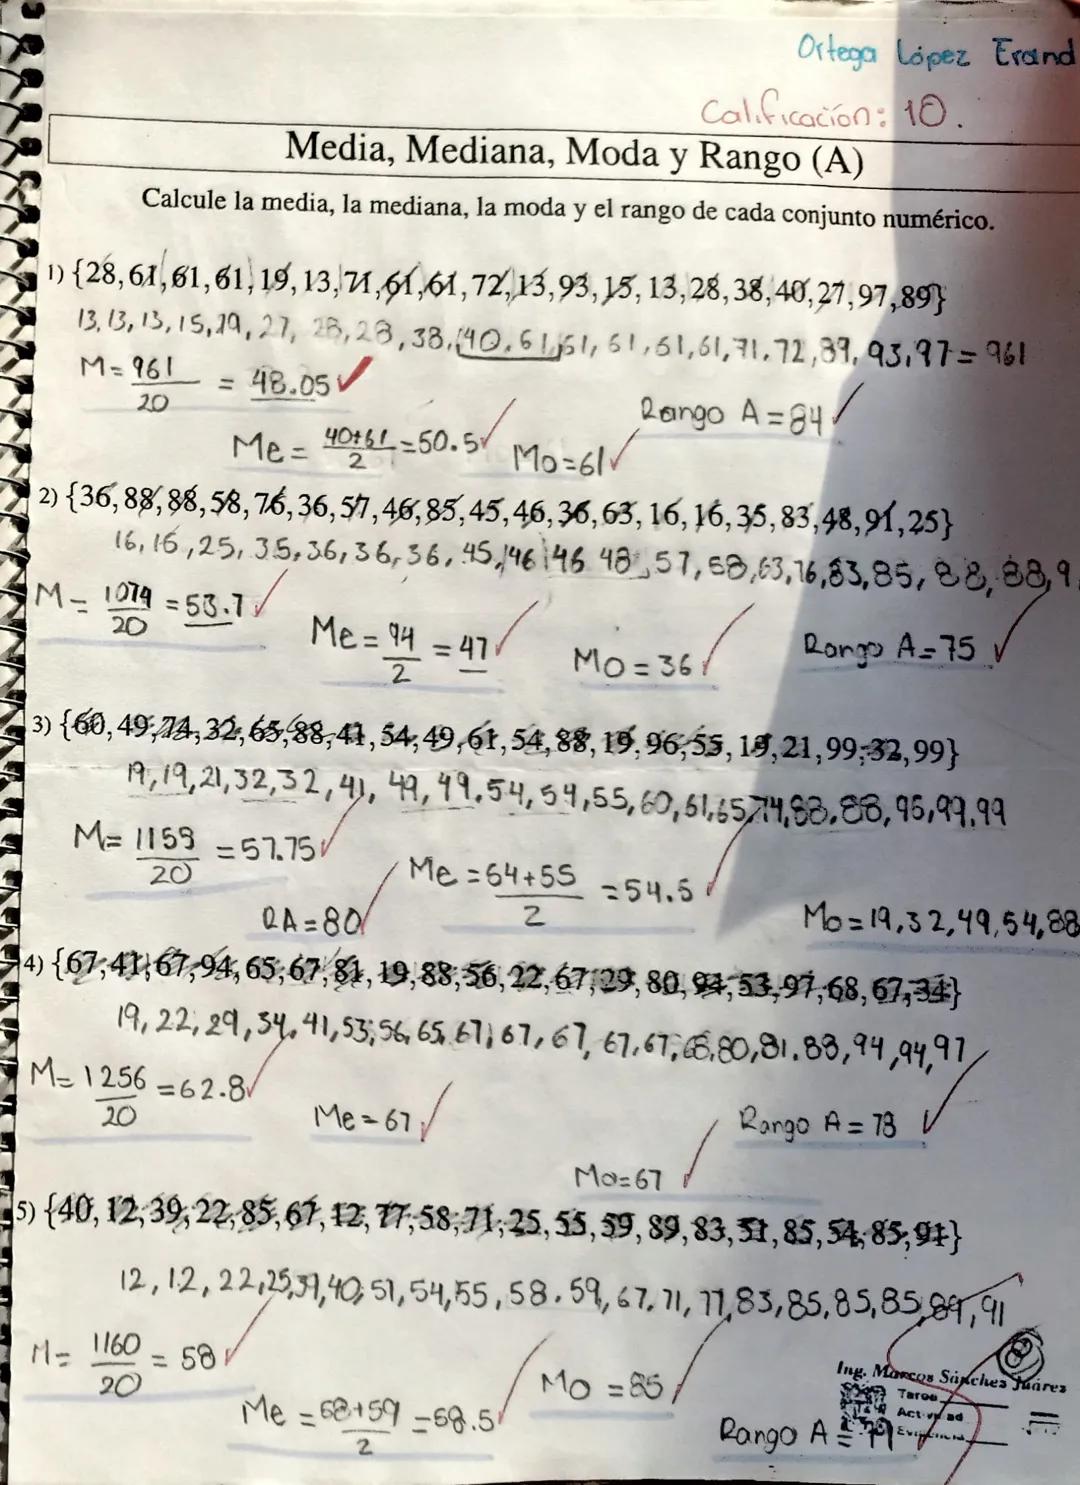 Ortega López Erand
Calificación: 10.
Media, Mediana, Moda y Rango (A)
Calcule la media, la mediana, la moda y el rango de cada conjunto numérico.
1) {28, 61, 61, 61, 19, 13, 71, 61, 61, 72, 13, 93, 15, 13, 28, 38, 40, 27, 97, 89}
13, 13, 13, 15, 19, 27, 28, 28, 38, 40, 61, 61, 61, 61, 61, 71, 72, 89, 93, 97 = 961
M = 961/20 = 48.05
Rango A = 84
Me = 40+61/2 = 50.5 Mo = 61
2) {36, 88, 88, 58, 76, 36, 57, 46, 85, 45, 46, 36, 63, 16, 16, 35, 83, 48, 91, 25}
16, 16, 25, 35, 36, 36, 36, 45, 46 46 48, 57, 58, 63, 76, 83, 85, 88, 88, 9
M = 1074/20 = 53.7
Me = 94/2 = 47 Mo = 36 Rango A = 75
3) {60, 49, 74, 32, 65, 88, 41, 54, 49, 61, 54, 88, 19, 96, 55, 19, 21, 99, 32, 99}
19, 19, 21, 32, 32, 41, 49, 49, 54, 54, 55, 60, 61, 65, 74, 88, 88, 96, 99, 99
M = 1155/20 = 57.75
Me = 54+55/2 = 54.5
RA = 80 Mo = 19, 32, 49, 54, 88
4) {67, 41, 67, 94, 65, 67, 81, 19, 88, 56, 22, 67, 29, 80, 94, 53, 97, 68, 67, 34}
19, 22, 29, 34, 41, 53, 56, 65, 67, 67, 67, 67, 67, 68, 80, 81, 88, 94, 94, 97
M = 1256/20 = 62.8
Me = 67 Rango A = 78
Mo = 67
5) {40, 12, 39, 22, 85, 67, 12, 77, 58, 71, 25, 55, 59, 89, 83, 51, 85, 54, 85, 91}
12, 12, 22, 25, 39, 40, 51, 54, 55, 58, 59, 67, 71, 77, 83, 85, 85, 85, 89, 91
M = 1160/20 = 58
Mo = 85
Me = 58+59/2 = 58.5
Ing. Marcos Sánchez Juárez
Tarea
Actividad
Evidencia
Rango A = 79